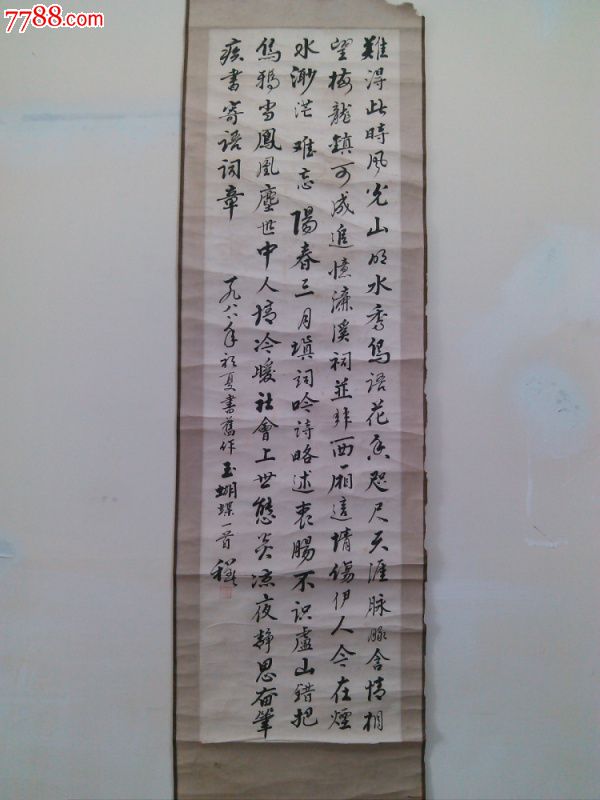 7788.com
難得此時風光山明水秀鳥語花香咫尺天涯脉脉含情相
望梅龍鎮可成追憶濂溪祠並非西厢這情傷伊人今在煙
水渺茫难忘陽春三月填詞吟詩略述衷腸不识盧山錯把
烏鴉当鳳凰塵世中人情冷暖社會上世態炎凉夜静思奋筆
疾書寄語詞章
一九八八年初夏書舊作玉蝴蝶一首